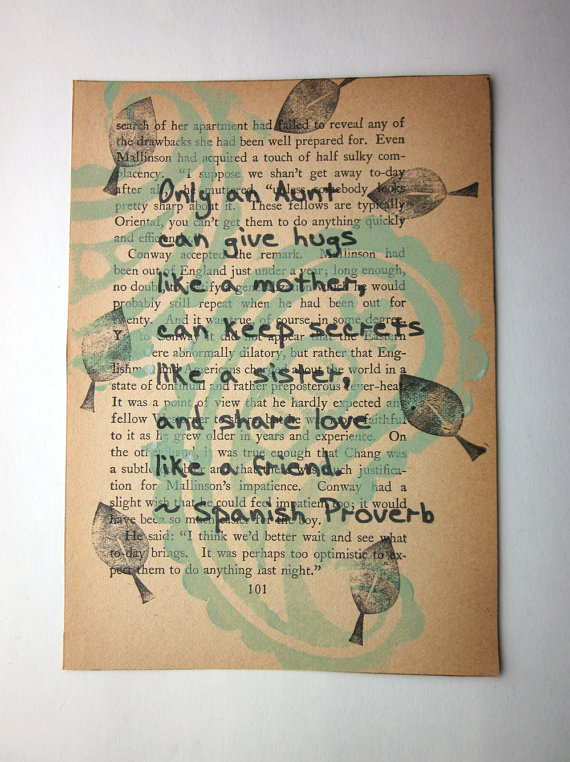 Only an Aunt
can give hugs
like a mother,
can keep secrets
like a sister,
and share love
like a friend.
~ Spanish Proverb
search of her apartment had failed to reveal any of
the drawbacks she had been well prepared for. Even
Mallinson had acquired a touch of half sulky com-
placency. "I suppose we shan't get away to-day
after all," he muttered, "unless somebody looks
pretty sharp about it. These fellows are typically
Oriental, you can't get them to do anything quickly
and efficiently."
Conway accepted the remark. Mallinson had
been out of England just under a year; long enough,
no doubt, to justify a generalization which he would
probably still repeat when he had been out for
twenty. And it was true, of course, in some degree.
Yet to Conway it did not appear that the Eastern
were abnormally dilatory, but rather that Eng-
lishmen and Americans charged about the world in a
state of continual and rather preposterous fever-heat.
It was a point of view that he hardly expected any
fellow Westerner to share, but he was more faithful
to it as he grew older in years and experience. On
the other hand, it was true enough that Chang was
a subtle and that there was much justifica-
tion for Mallinson's impatience. Conway had a
slight wish that he could feel impatient too; it would
have been so much easier for the boy.
He said: "I think we'd better wait and see what
to-day brings. It was perhaps too optimistic to ex-
pect them to do anything last night."
101